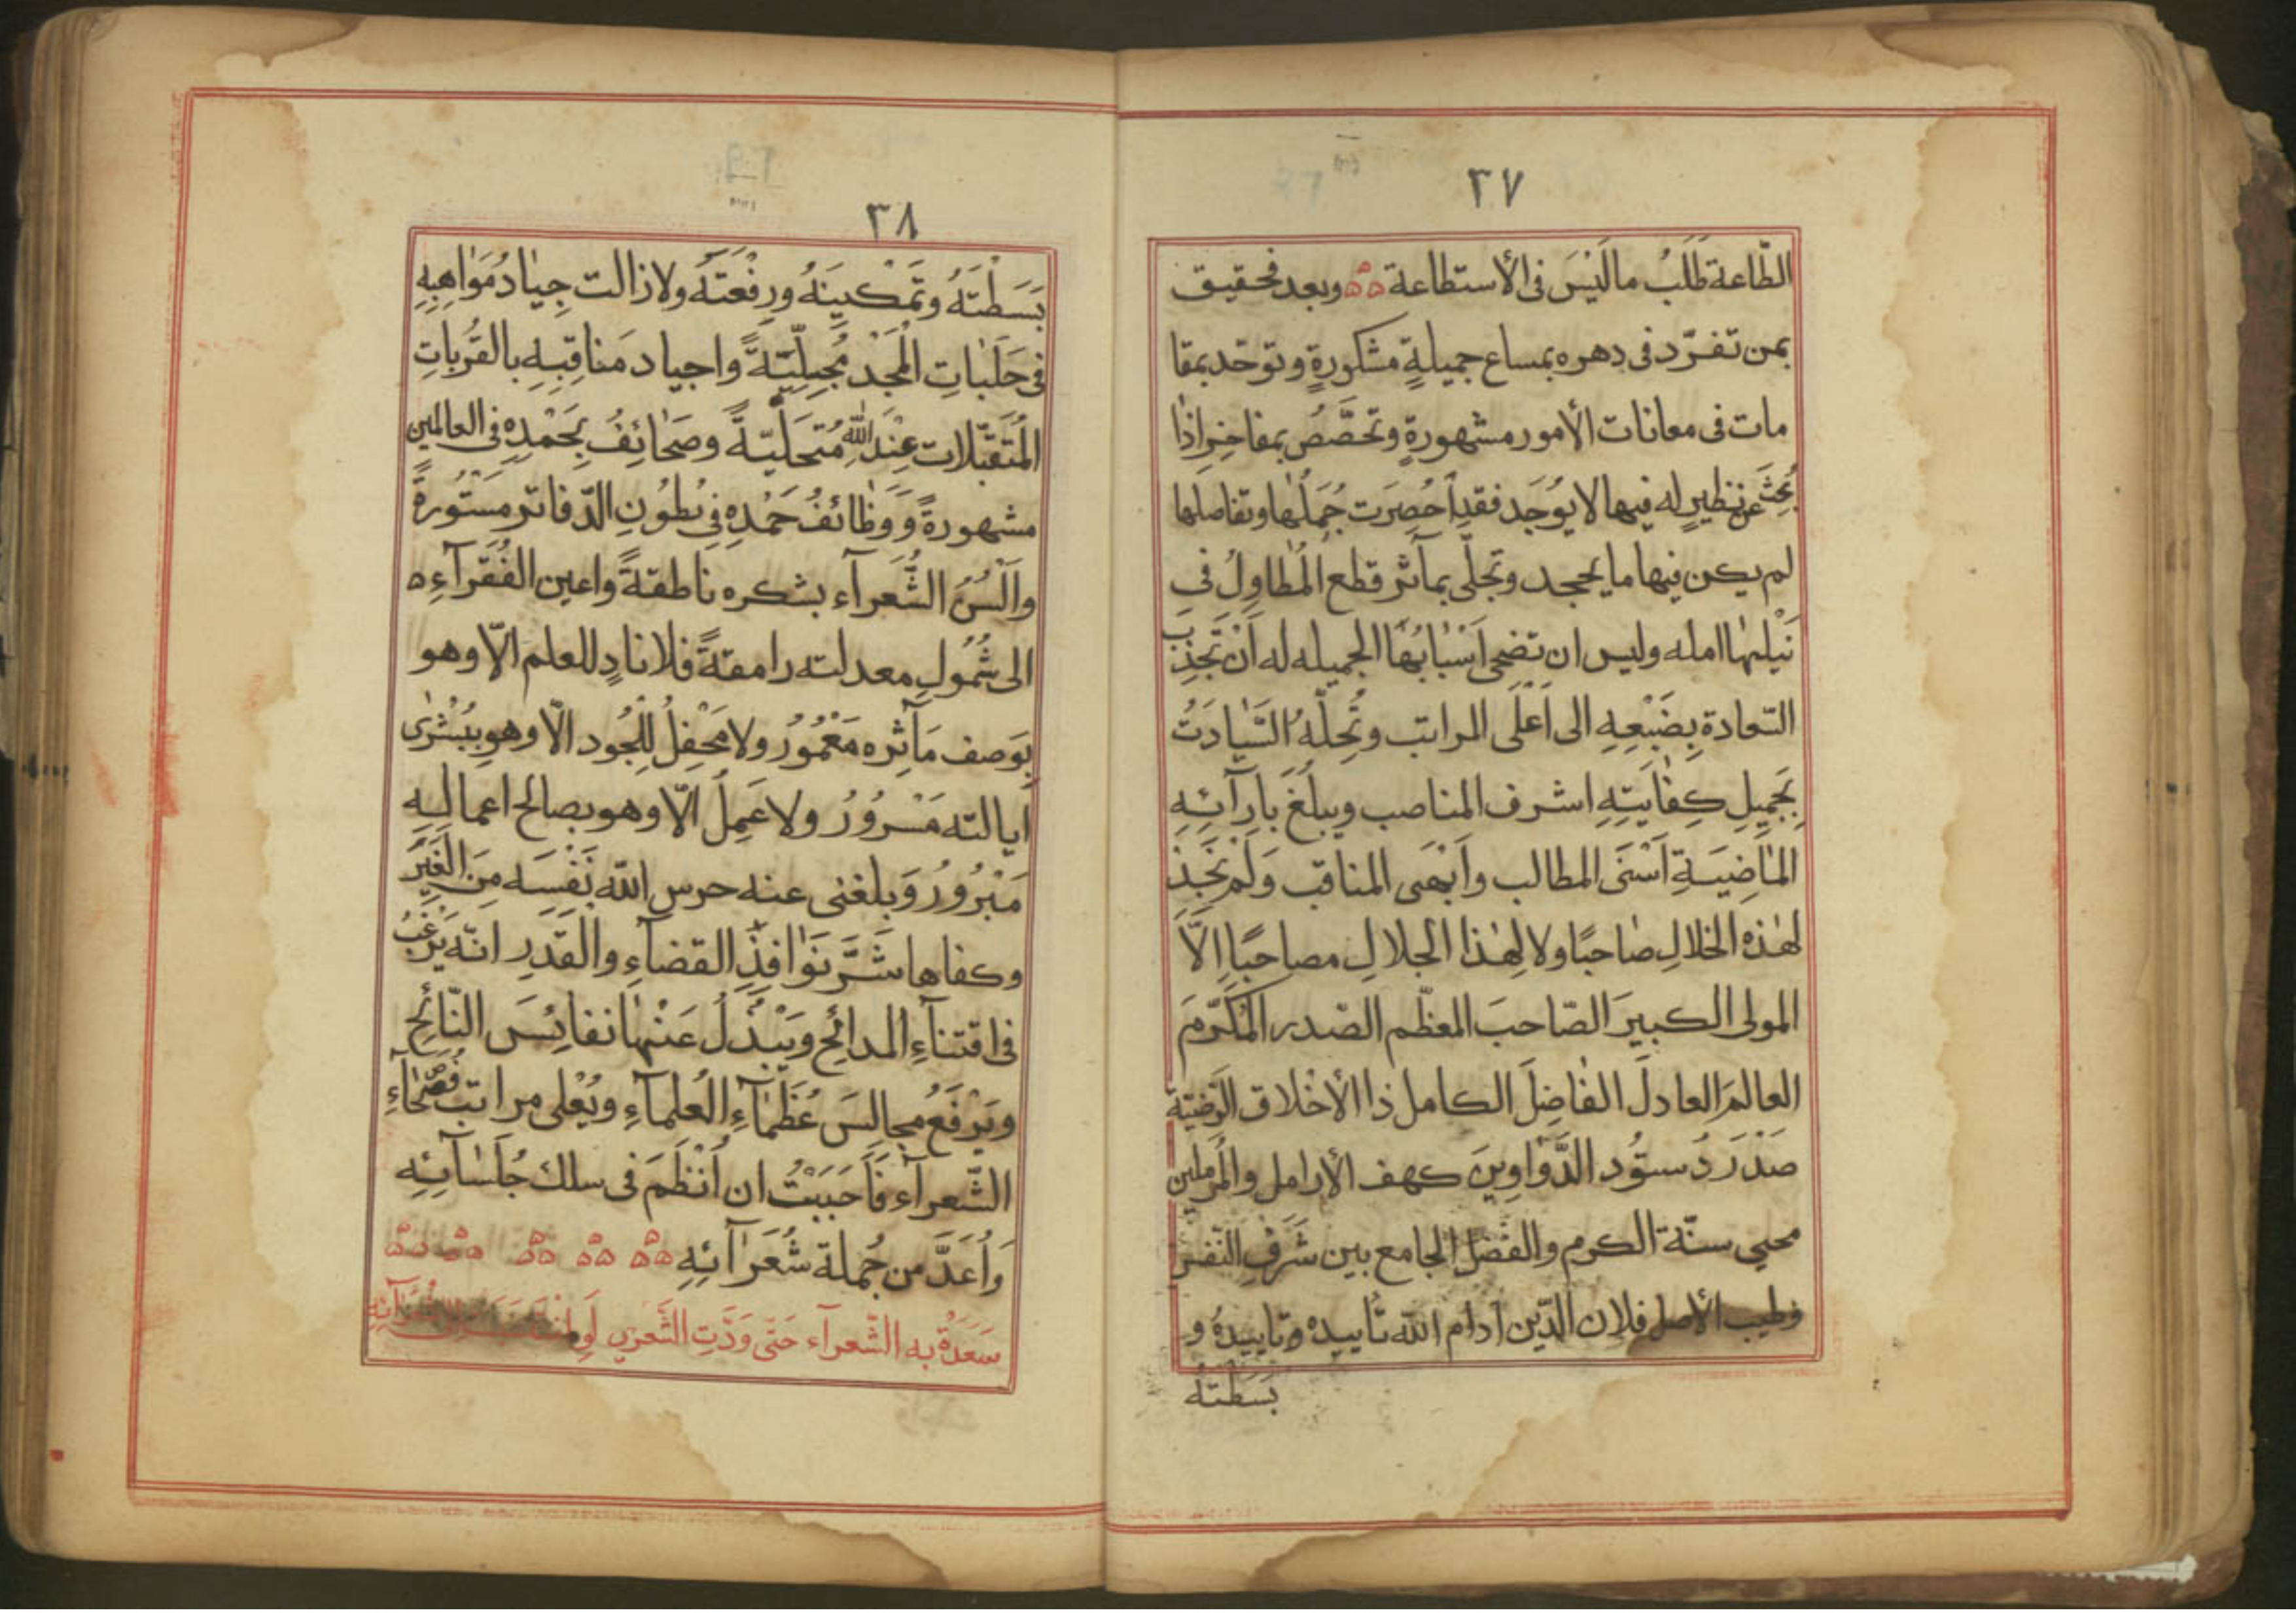 ٣٧
الطّاعة طَلَبُ مالَيْسَ فى الأستطاعة وبعد فحقيق
بمن تفرّد فى دهره بمساع جميلةٍ مشكورةٍ وتوحّد بمقا
مات فى معانات الأمور مشهورةٍ وتخصّص بمفاخِرٍ اذا
بُحِثَ عن نظيرٍ له فيها لا يُوجَد فقد اُحصِرَت جُمَلُهٰا وتفاصلها
لم يكن فيها ما يجحد وتجلّى بمآثر قطع المُطاوِلُ فى
نَيْلِهٰا امله وليس ان تضحى اَسْبٰابُهَا الجميله له اَنْ تَجْذِبَ
السّعادة بِضَبْعِهِ الى اَعْلَى المراتب وتُحِلَّهُ السّيٰادَتُ
بِجَمِيلِ كِفٰايَتِهِ اشرف المناصب ويبلغ بارآئِهِ
المٰاضِيَةِ اَسْنَى المطالب واَبْهَى المناقب وَلَمْ نَجِدْ
لهٰذه الخلالِ صٰاحبًا ولا لِهٰذا الجلالِ مصاحبًا اِلاَّ
المولى الكبيرَ الصّاحبَ المعظّم الصّدر المُكَرّمَ
العالمَ العادلَ الفٰاضِلَ الكامل ذا الأخلاق الرّضيّة
صَدْرَ دُستُود الدَّوٰاوِينَ كهف الأرامل والمُرملين
محيى سنّة الكرم والفَضْلِ الجامع بين شَرَفِ النّفس
وطيب الأصل فلان الدّين ادام الله تأييدهُ وتاييدهُ و
بَسَطتهُ
٣٨
بَسَطْتَهُ وتَمْكينَهُ ورِفْعَتَهُ ولا زالت جِيٰادُ مَوٰاهِبِهِ
فى حَلَبٰاتِ الْمَجْدِ مُجِلِّيَّةً واجياد مَناقِبِهِ بالقُرُباتِ
المُتَقَبَّلات عِنْدَ اللهِ مُتَحَلّيَّةً وصَحٰائِفُ بِحَمْدِهِ فى العالمين
مشهورةً وَوَظٰائفُ حَمْدِهِ فى بُطُونِ الدّفاتر مَسْتُورةً
واَلْسُنُ الشُّعَرآء بشكره ناطقةً واعين الفُقَرآءِ
الى شُمُولِ معدلته رامقةً فلا نادٍ للعلم الاّ وهو
بِوَصف مَآثِره مَعْمُورٌ ولا مَحْفِلُ لِلْجُود الاّ وهو بِبُشْرٰى
ايالته مَسْرُورٌ ولا عَمِلُ الاّ وهو بصالح اعماله
مَبْرُورٌ وَبلغنى عنه حرس الله نَفْسَه مِنَ الغِيَرِ
وكفاها شَرَّ نَوٰافِذِ القضآءِ والقَدَرِ انّه يَرْغَبُ
فى اقتنآءِ المدائح ويَبْذُلُ عَنْهٰا نفائِسَ النّائحِ
ويَرْفَعُ مجالسَ عُظَمٰآءِ العُلمآءِ ويُعْلى مراتب فُصَحٰآءِ
الشّعرآء فَاَحبَبْتُ ان اُنْظَمَ فى سلك جُلَسٰآئِهِ
وَاُعَدَّ من جُملة شُعَرٰآئِهِ
سَعَدَةٌ به الشّعرآء حَتّى وَدَّتِ الشّعرى